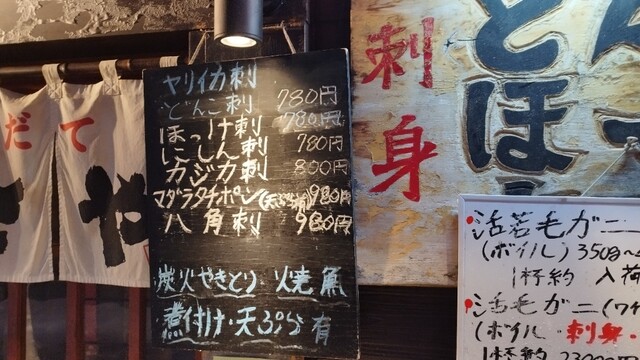 ヤリイカ刺 780円
どんこ刺 780円
ほっけ刺 780円
にしん刺 800円
カジカ刺
マダラタチポン(天ぷら有) 980円
八角刺 980円
炭火やきとり 焼魚
煮付け・天ぷら有
刺身
どん
ほっ
だて
や
活若毛ガニ
(ボイル) 350g〜
1杯約 入荷
活毛ガニ(ワタ
(ボイル 刺身
1杯約